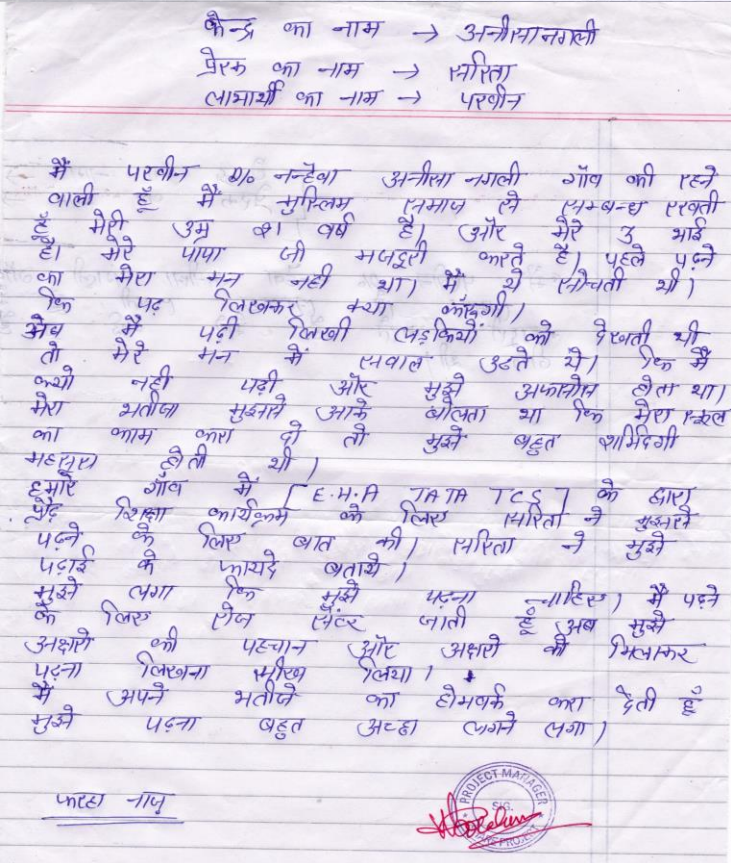 केन्द्र का नाम → अनीसानगली
प्रेरक का नाम → सरिता
लाभार्थी का नाम → परवीन
मैं परवीन D/o नन्हेवा अनीसा नगली गाँव की रहने
वाली हूँ मैं मुस्लिम समाज से सम्बन्ध रखती
हूँ मेरी उम्र 21 वर्ष है। और मेरे 3 भाई
है। मेरे पापा जी मजदूरी करते है। पहले पढ़ने
का मेरा मन नही था। मैं ये सोचती थी।
कि पढ़ लिखकर क्या करूंगी।
जब मैं पढ़ी लिखी लड़कियों को देखती थी
तो मेरे मन में सवाल उठते थे। कि मैं
क्यो नही पढ़ी और मुझे अफसोस होता था।
मेरा भतीजा मुझसे आके बोलता था कि मेरा स्कूल
का काम करा दो तो मुझे बहुत शर्मिदगी
महसूस होती थी।
हमारे गाँव में [E.H.A TATA TCS] के द्वारा
प्रौढ़ शिक्षा कार्यक्रम के लिए सरिता ने मुझसे
पढ़ने के लिए बात की। सरिता ने मुझे
पढ़ाई के फायदे बताये।
मुझे लगा कि मुझे पढ़ना चाहिए। मैं पढ़ने
के लिए रोज सेंटर जाती हूँ अब मुझे
अक्षरो की पहचान और अक्षरो को मिलाकर
पढ़ना लिखना सीख लिया।
मैं अपने भतीजे का होमवर्क करा देती हूँ
मुझे पढ़ना बहुत अच्छा लगने लगा।
फरहा नाज
PROJECT MANAGER
SIG.
PROJECT